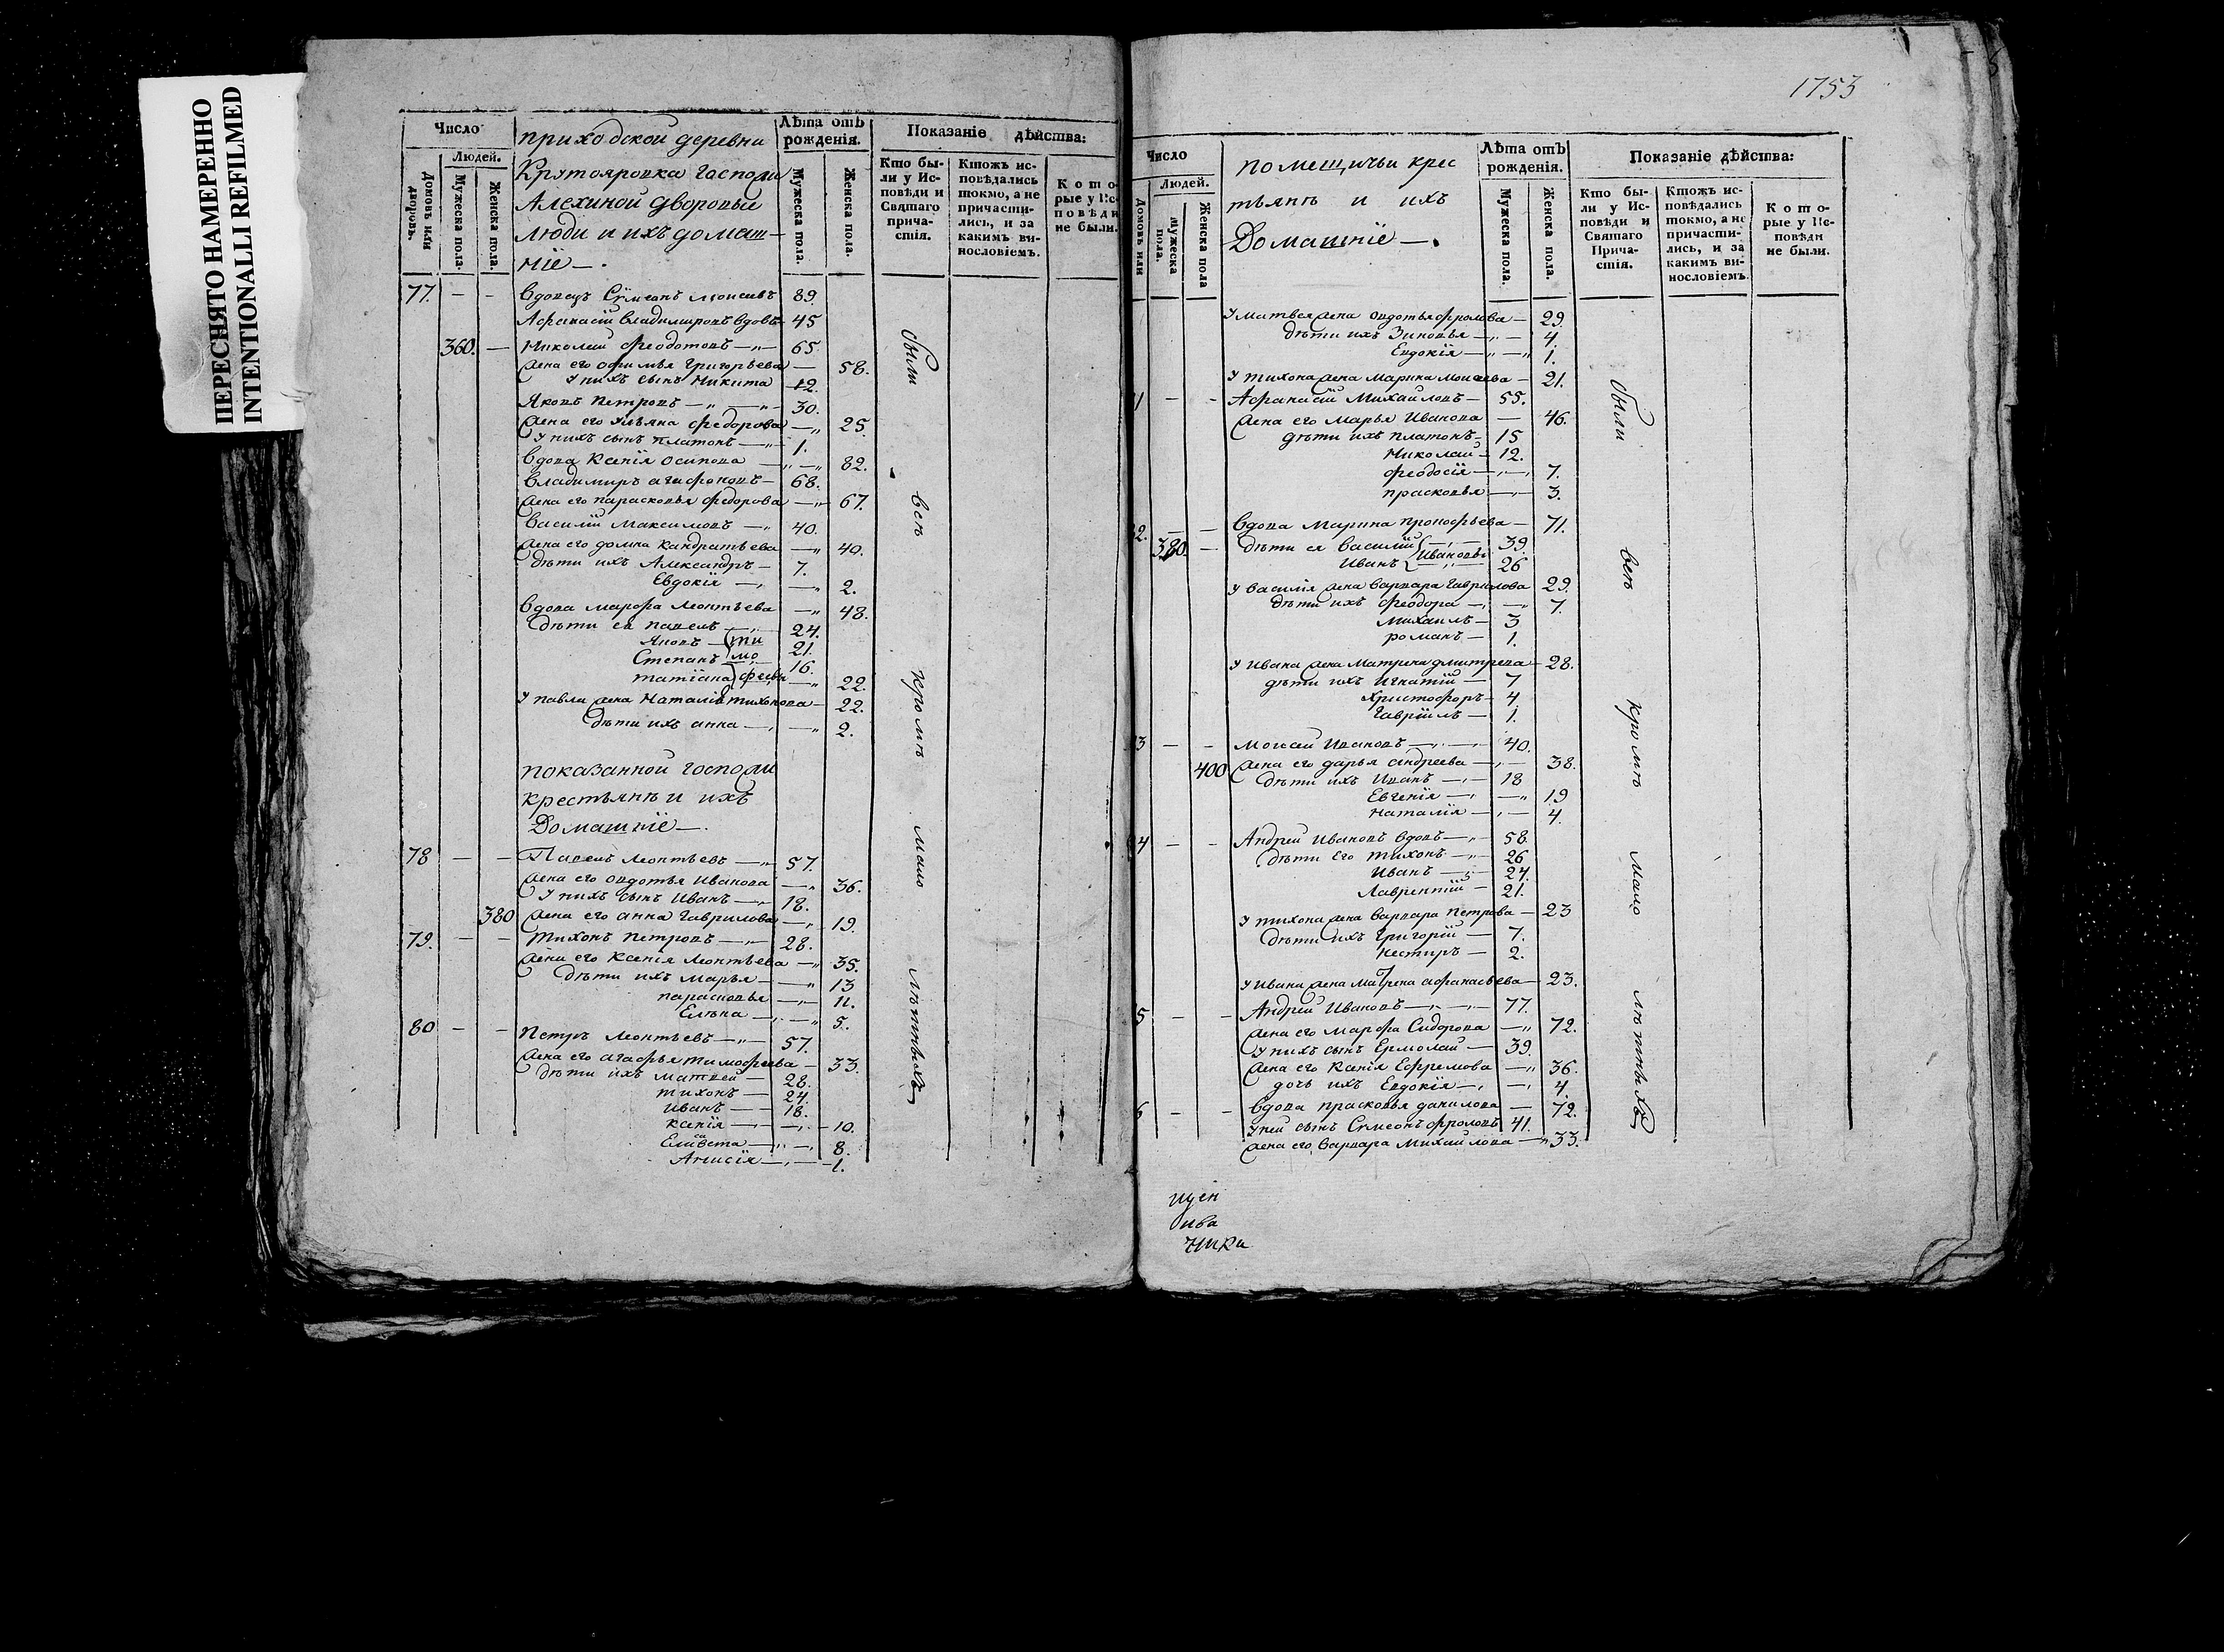 ПЕРЕСНЯТО НАМЕРЕННО
INTENTIONALLI REFILMED
Число
Людей.
Домовъ или дворовъ.
Мужеска пола.
Женска пола.
приходской деревни
Крутояровка Госпожи
Алехиной дворовые
люди и ихъ домаш-
ніе —.
Лѣта отъ рожденія.
Мужеска пола.
Женска пола.
Показаніе дѣйства:
Кто бы-
ли у Ис-
повѣди и
Святаго
прича-
стія.
Ктожъ ис-
повѣдались
токмо, а не
причасти-
лись, и за
какимъ ви-
нословіемъ.
Кото-
рые у Ис-
повѣди
не были.
77. — — вдовецъ Сѵмеонъ Моисеевъ 89.
Афанасій Владимировъ вдовъ — 45
360. — Николай Феодотовъ — 65
жена его Офимья Григорьева — 58.
у нихъ сынъ Никита — 12.
Яковъ Петровъ — 30.
жена его Ульяна Федорова — 25.
у нихъ сынъ Платонъ — 1.
вдова Ксенія Осипова — 82.
Владимиръ Агафоновъ — 68.
жена его Парасковья Федорова — 67.
Василій Максимовъ — 40.
жена его Домна Кандратьева — 40.
дѣти ихъ Александръ — 7.
Евдокія — 2.
вдова Марфа Леонтьева — 48.
дѣти ея Павелъ — 24.
Яковъ — 21.
Степанъ — 16.
Татіана — 22.
тимофѣевы
у Павла жена Наталія Тихонова — 22.
дѣти ихъ Анна — 2.
показанной Госпожи
крестьянѣ и ихъ
Домашніе —.
78 — — Павелъ Леонтьевъ — 57.
жена его Овдотья Иванова — 36.
у нихъ сынъ Иванъ — 18.
380 жена его Анна Гаврилова — 19.
79. — — Тихонъ Петровъ — 28.
жена его Ксенія Леонтьева — 35.
дѣти ихъ Марья — 13
Парасковья — 11.
Елѣна — 5.
80 — — Петръ Леонтьевъ — 57.
жена его Агафья Тимофеева — 33.
дѣти ихъ Матвей — 28.
Тихонъ — 24.
Иванъ — 18.
Ксенія — 10.
Елисавета — 8.
Анисія — 1.
были всѣ кромѣ мало лѣтныхъ
1753
Число
Людей.
Домовъ или
Мужеска пола.
Женска пола
помещичьи крес
тьянѣ и ихъ
Домашніе —.
Лѣта отъ рожденія.
Мужеска пола.
Женска пола.
Показаніе дѣйства:
Кто бы-
ли у Ис-
повѣди и
Святаго
Прича-
стія.
Ктожъ ис-
повѣдались
токмо, а не
причасти-
лись, и за
какимъ ви-
нословіемъ.
Кото-
рые у Ис-
повѣди
не были.
у Матвея жена Овдотья Фролова — 29.
дѣти ихъ Зиновья — 4.
Евдокія — 1.
у Тихона жена Марина Моисеева — 21.
1 — — Афанасій Михайловъ — 55.
жена его Марья Иванова — 46.
дѣти ихъ Платонъ — 15
Николай — 12.
Феодосія — 7.
Прасковья — 3.
2. — — вдова Марина Прокофьева — 71.
380. — дѣти ея Василій — 39.
Ивановы
Иванъ — 26
у Василія жена Варвара Гаврилова 29.
дѣти ихъ Феодора — 7.
Михаилъ — 3
Романъ — 1.
у Ивана жена Матрена Дмитрева — 28.
дѣти ихъ Игнатій — 7
Христофоръ — 4
Гавріилъ — 1.
3 — — Моисей Ивановъ — 40.
400 жена его Дарья Андреева — 38.
дѣти ихъ Иванъ — 18
Евгенія — 19
Наталія — 4.
4 — — Андрей Ивановъ вдовъ — 58.
дѣти его Тихонъ — 26
Иванъ — 24.
Лаврентій — 21.
у Тихона жена Варвара Петрова — 23
дѣти ихъ Григорій — 7.
Нестиръ — 2.
у Ивана жена Матрена Афанасьева — 23.
5 — — Андрей Ивановъ — 77.
жена его Марфа Сидорова — 72.
у нихъ сынъ Ермолай — 39.
жена его Ксенія Ефремова — 36.
дочь ихъ Евдокія — 4.
6 — — вдова Прасковья Данилова — 72.
у ней сынъ Сѵмеонъ Фроловъ 41.
жена его Варвара Михайлова — 33.
были всѣ кромѣ мало лѣтныхъ
ива